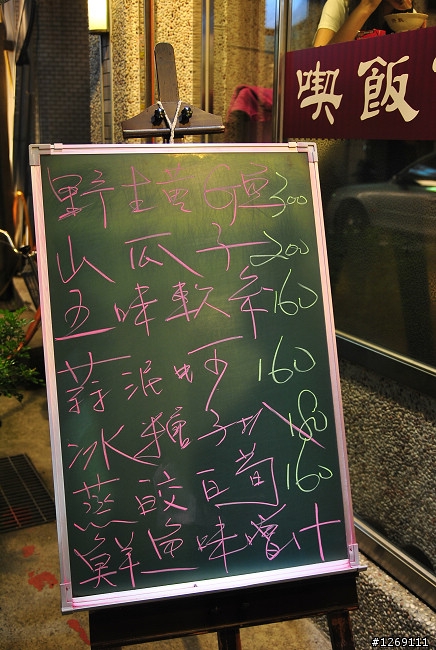 喫飯
野生黃魚 300
山瓜子 200
五味軟糸 160
蒜泥蚵 160
冰糖子 180
豆 160
鮮魚味噌汁
#1269111